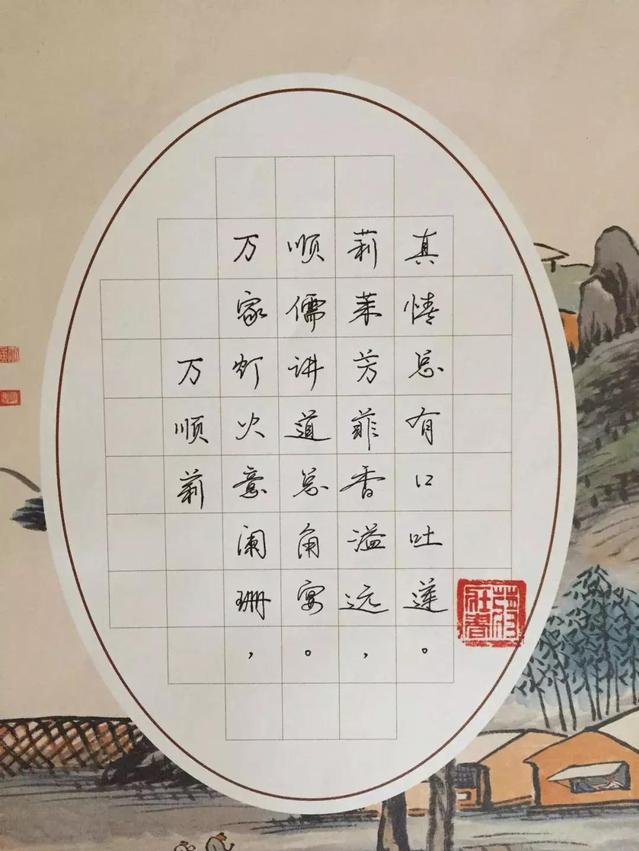 万顺莉
万家灯火意阑珊，
顺儒讲道总角宴。
莉茉芳菲香溢远，
真情总有口吐莲。